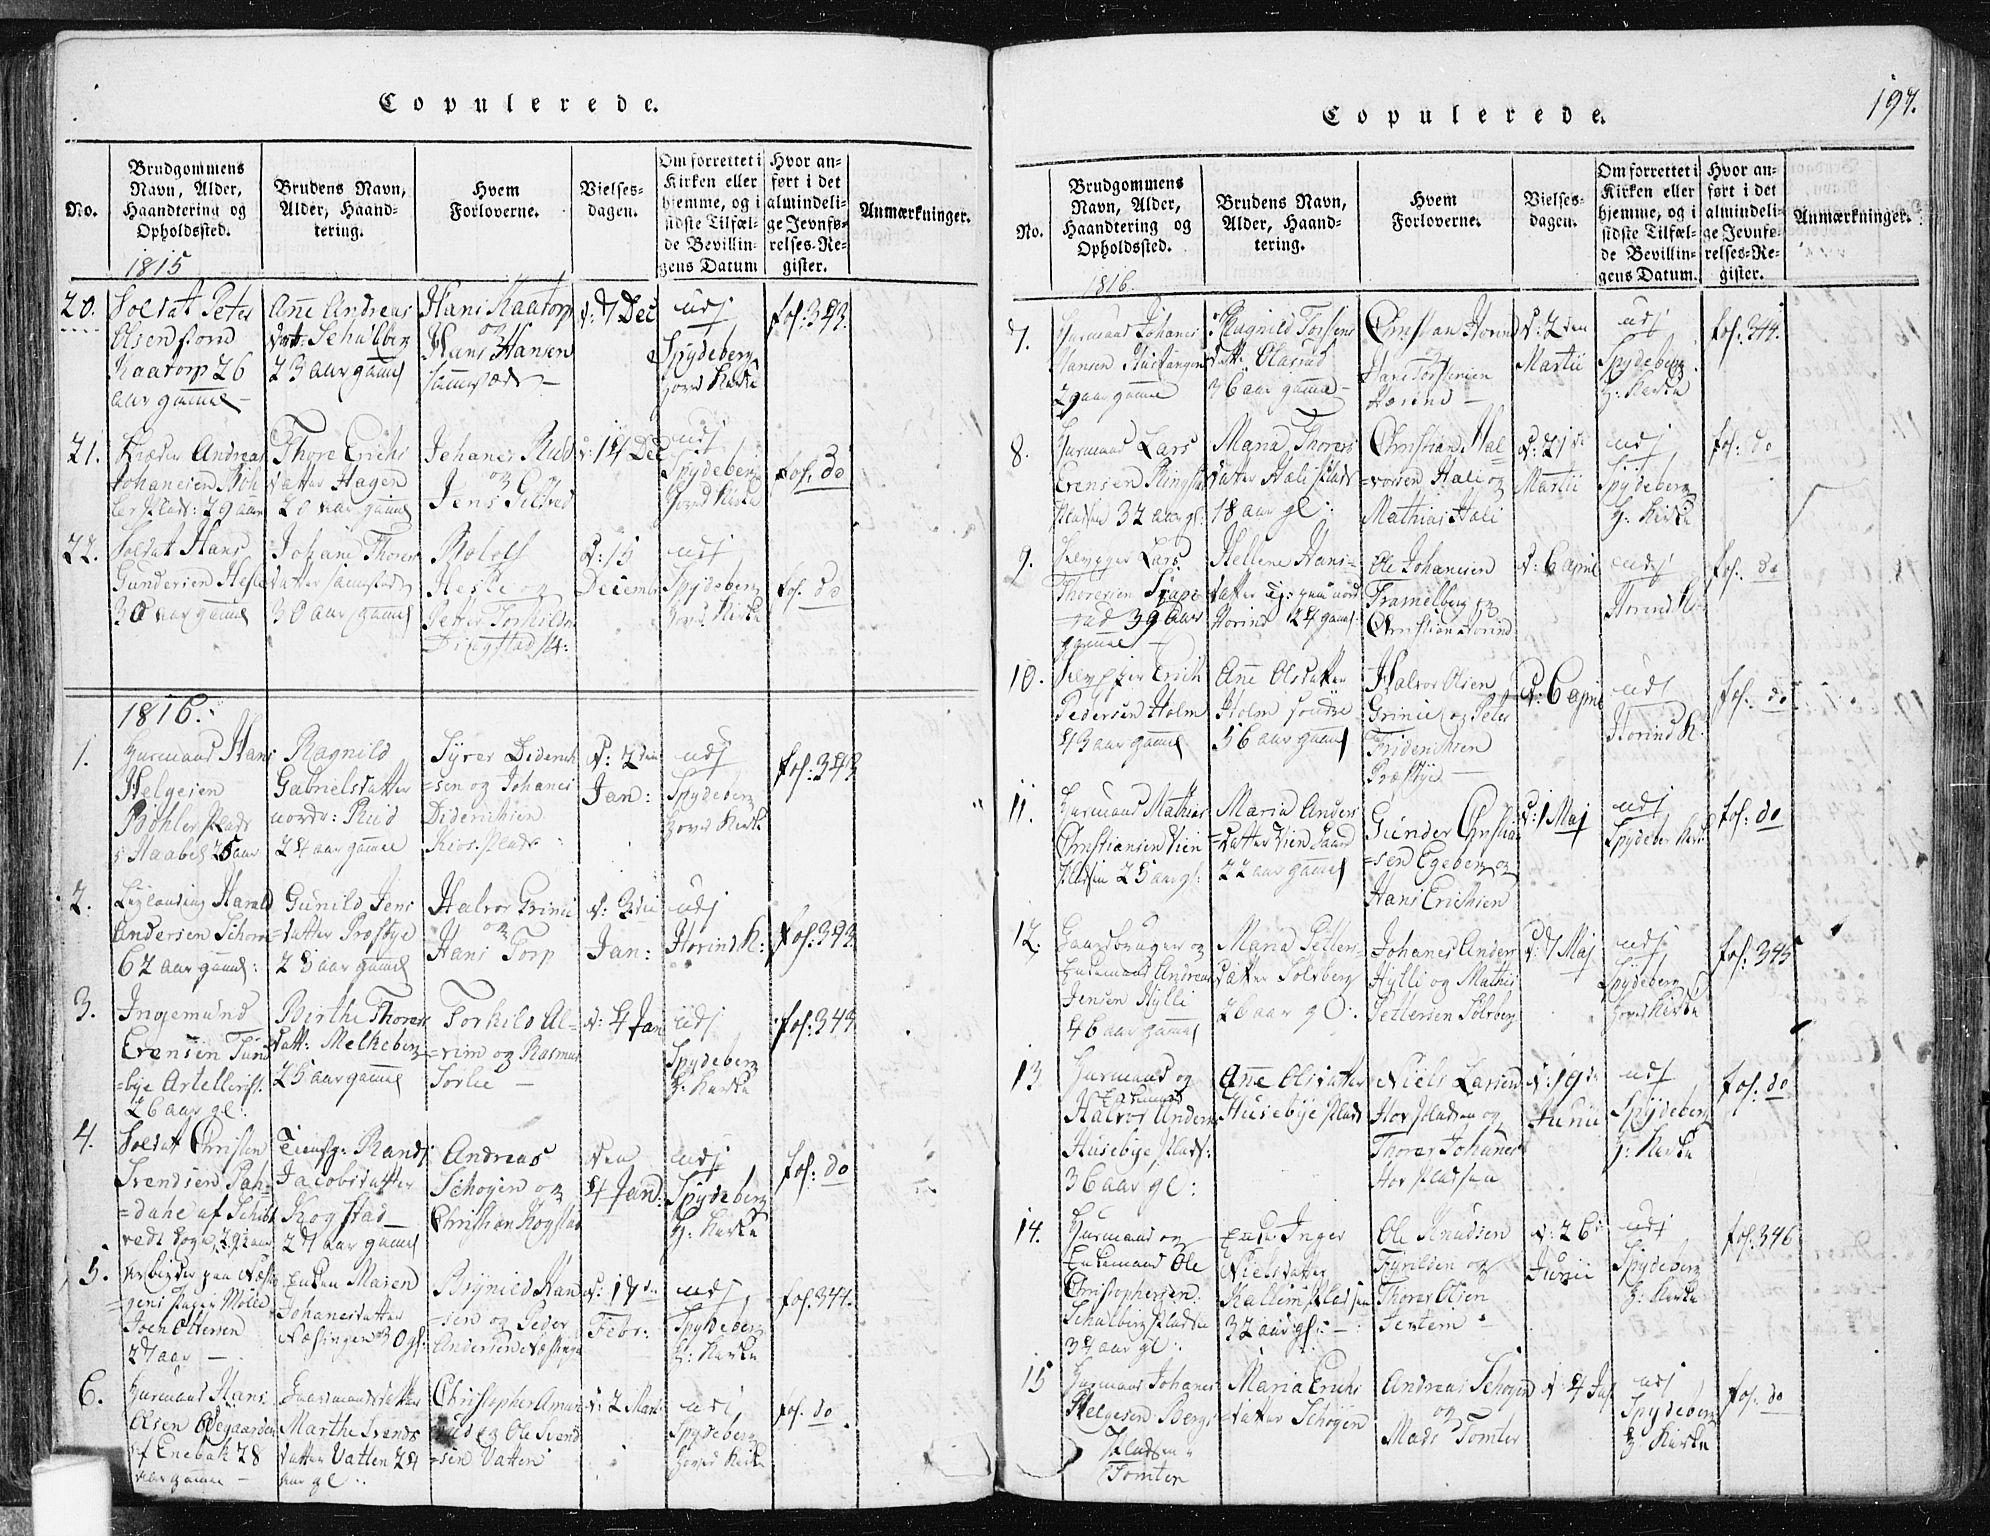 Copulerede.
No.
Brudgommens
Navn, Alder,
Haandtering og
Opholdssted.
Brudens Navn,
Alder, Haand-
tering.
Hvem
Forloverne.
Vielses-
dagen.
Om forrettet i
Kirken eller
hjemme, og i
sidste Tilfæl-
de Bevillin-
gens Datum
Hvor an-
ført i det
almindeli-
ge Jevnfø-
relses-Re-
gister.
Anmærkninger.
1815
20.
Soldat Peter
Olsen
Kaatorp 26
aar gamel
Ane Andreas
datt: Schulberg
23 aar gamel
Hans Kaatorp
og
Hans Hansen
sammesteds
d: 7 Dec
udj
Spydeberg
hoved Kirke
fol: 343.
21.
Andreas
Johanesen
plads: 29 aar
Thore Erichs
datter Hagen
20 aar gamel
Johanes Rud
og
Jens
d: 14 Dec
udj
Spydeberg
hoved Kirke
fol: do
22.
Soldat Hans
Gundersen Hesle
30 aar gamel
Johane Thores
datter samesteds
30 aar gamel
Rolof
Hesle og
Petter Torkildsen
Dingstad
d: 15
Decembr
udj
Spydeberg
hoved Kirke
fol: do
1816.
1.
Huusmand Hans
Helgesen
Bøhler plads
25 aar
Ragnild
Gabrielsdatter
nordr: Rud
24 aar gamel
Syver Diderich
=sen og Johanes
Diderichsen
Kios: plads
d: 2den
Jan:
udj
Spydeberg
hoved Kirke
fol: 343
2.
Harald
Andersen
62 aar gamel:
Gunild Jens
=datter Præstye
25 aar gamel
Halvor Grinie
og
Hans Torp
d: 3die
Jan:
udj
Hovind K:
fol: 343.
3.
Ingemund
Evensen Tand
=bye Artellerist.
26 aar gl:
Birthe Thores
datt: Melkeberg
25 aar gamel
Torkild Al-
=rim og Rasmus
Sørlie
d: 4 Jan
udj
Spydeberg
H: Kirke
fol: 344
4.
Soldat Christen
Svendsen
=dahl af Schibt
vedt Sogn, 29 aar
Randi
Jacobsdatter
Kogstad
27 aar gamel
Andreas
Schøyen og
Christian Kogstad
den
4 Jan:
udj
Spydeberg
H: Kirke
fol: do
5.
Arbeyder paa Næsin
=gens papir Mølle
Joen Ottersen
27 aar
Enken Maren
Johanesdatter
Næsingen
Brynild Han
=sen og Peder
Andersen Næsingen
d: 17de
Febr:
udj
Spydeberg
H: Kirke
fol: 344.
6.
Huusmand Hans
Olsen Ødegaarden
af Enebak 28
aar gamel
Gaardmandsdatter
Marthe Svends
datter Vatten 24
aar gl:
Christopher Amund
rud og Ole Svend
=sen Vatten
d: 2 Mart
udj
Spydeberg
hoved Kirke
fol. do
197.
Copulerede.
No.
Brudgommens
Navn, Alder,
Haandtering og
Opholdssted.
Brudens Navn,
Alder, Haand-
tering.
Hvem
Forloverne.
Vielses-
dagen.
Om forrettet i
Kirken eller
hjemme, og i
sidste Tilfæl-
de Bevillin-
gens Datum.
Hvor an-
ført i det
almindeli-
ge Jevnfø-
relses-Re-
gister.
Anmærkninger.
1816.
7.
Huusmand Johanes
Hansen
29 aar gamel
Ragnild Torstens
datt: Olasrud
36 aar gamel
Christian Hovind
og
Hans Torstensen
Hovind
d: 2den
Martii
udj
Spydeberg
H: Kirke
fol: 344.
8.
Huusmand Lars
Evensen
pladsen 32 aar gl:
Maria Thores
datter Hæli plads
18 aar gl:
Christian Hal-
vorsen Hæli og
Mathias Hæli
d: 21de
Martii
udj
Spydeberg
H: Kirke
fol: do
9.
Selveyer Lars
Thoresen
rud 39 aar
gamel
Hellene Hans-
datter
Hovind 24 gamel
Ole Johanesen
Tramelberg og
Christian Hovind
d: 6 April
udj
Hovind K:
fol: do
10.
Selveyer Erich
Pedersen Holm
43 aar gamel
Ane Olsdatter
Holm søndre
56 aar gamel
Halvor Olsen
Grinie og Peter
Friderichsen
Præstye
d: 6 April
udj
Hovind K:
fol: do
11.
Huusmand Mathias
Christiansen Vien
pladsen 25 aar gl:
Maria Anders
=datter Vien
22 aar gamel
Gunder Christian
=sen Egeberg og
Hans Erichsen
d: 1 Maj
udj
Spydeber Kirke
fol: do
12.
Gaardbruger og
Enkemand Andreas
Jensen Hylli
46 aar gamel
Maria Petters-
datter Solberg
26 aar gl:
Johanes Anders
Hylli og Mathis
Pettersen Solberg
d: 7 Maj
udj
Spydeberg
hoved Kirke
fol: 345
13
Huusmand og
Enkemand
Halvor Anders
Husebye plads:
36 aar gl:
Ane Olsdatter
Husebye plads
Niels Larsen
Hov pladsen og
Thorer Johanes
Hov pladsen
d: 19de
Junii
udj
Spydeberg
H: Kirke
fol: do
14.
Huusmand og
Enkemand Ole
Christophersen:
Schulberg pladsen
34 aar gl:
Enke Inger
Nielsdatter
Kallum pladsen
32 aar gl:
Ole Knudsen
Fyrilden og
Thorer Olsen
Sertem
d: 26de
Junii
udj
Spydeberg
H: Kirke
fol: 346
15
Huusmand Johanes
Helgesen Bergs
Pladsen
Tomter
Maria Erichs
datter Schøyen
Andreas Schøyen
og
Mads Tomter
d: 4 Jul
udj
Spydeberg
H: Kirke
fol: do